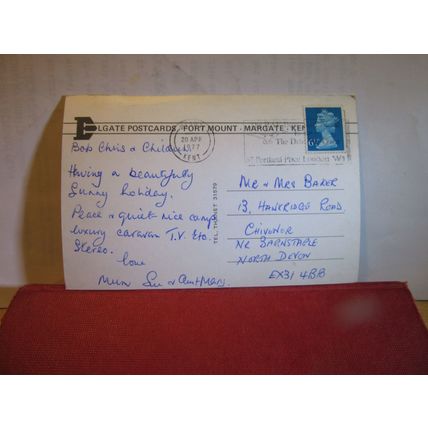 ELGATE POSTCARDS - FORT MOUNT - MARGATE - KEN
20 APR
1977
KENT
The
Portland Place London W1
TEL. THANET 31570
Bob Chris & Children,
Having a beautifully
Sunny holiday.
Peace & quiet nice camp
luxury caravan T.V. Etc.
Stereo.
love
Mum Su & Aunt Mary.
MR & MRS BAKER
13, HAWKRIDGE ROAD,
CHIVENOR
NR BARNSTABLE
NORTH DEVON
EX31 4BB